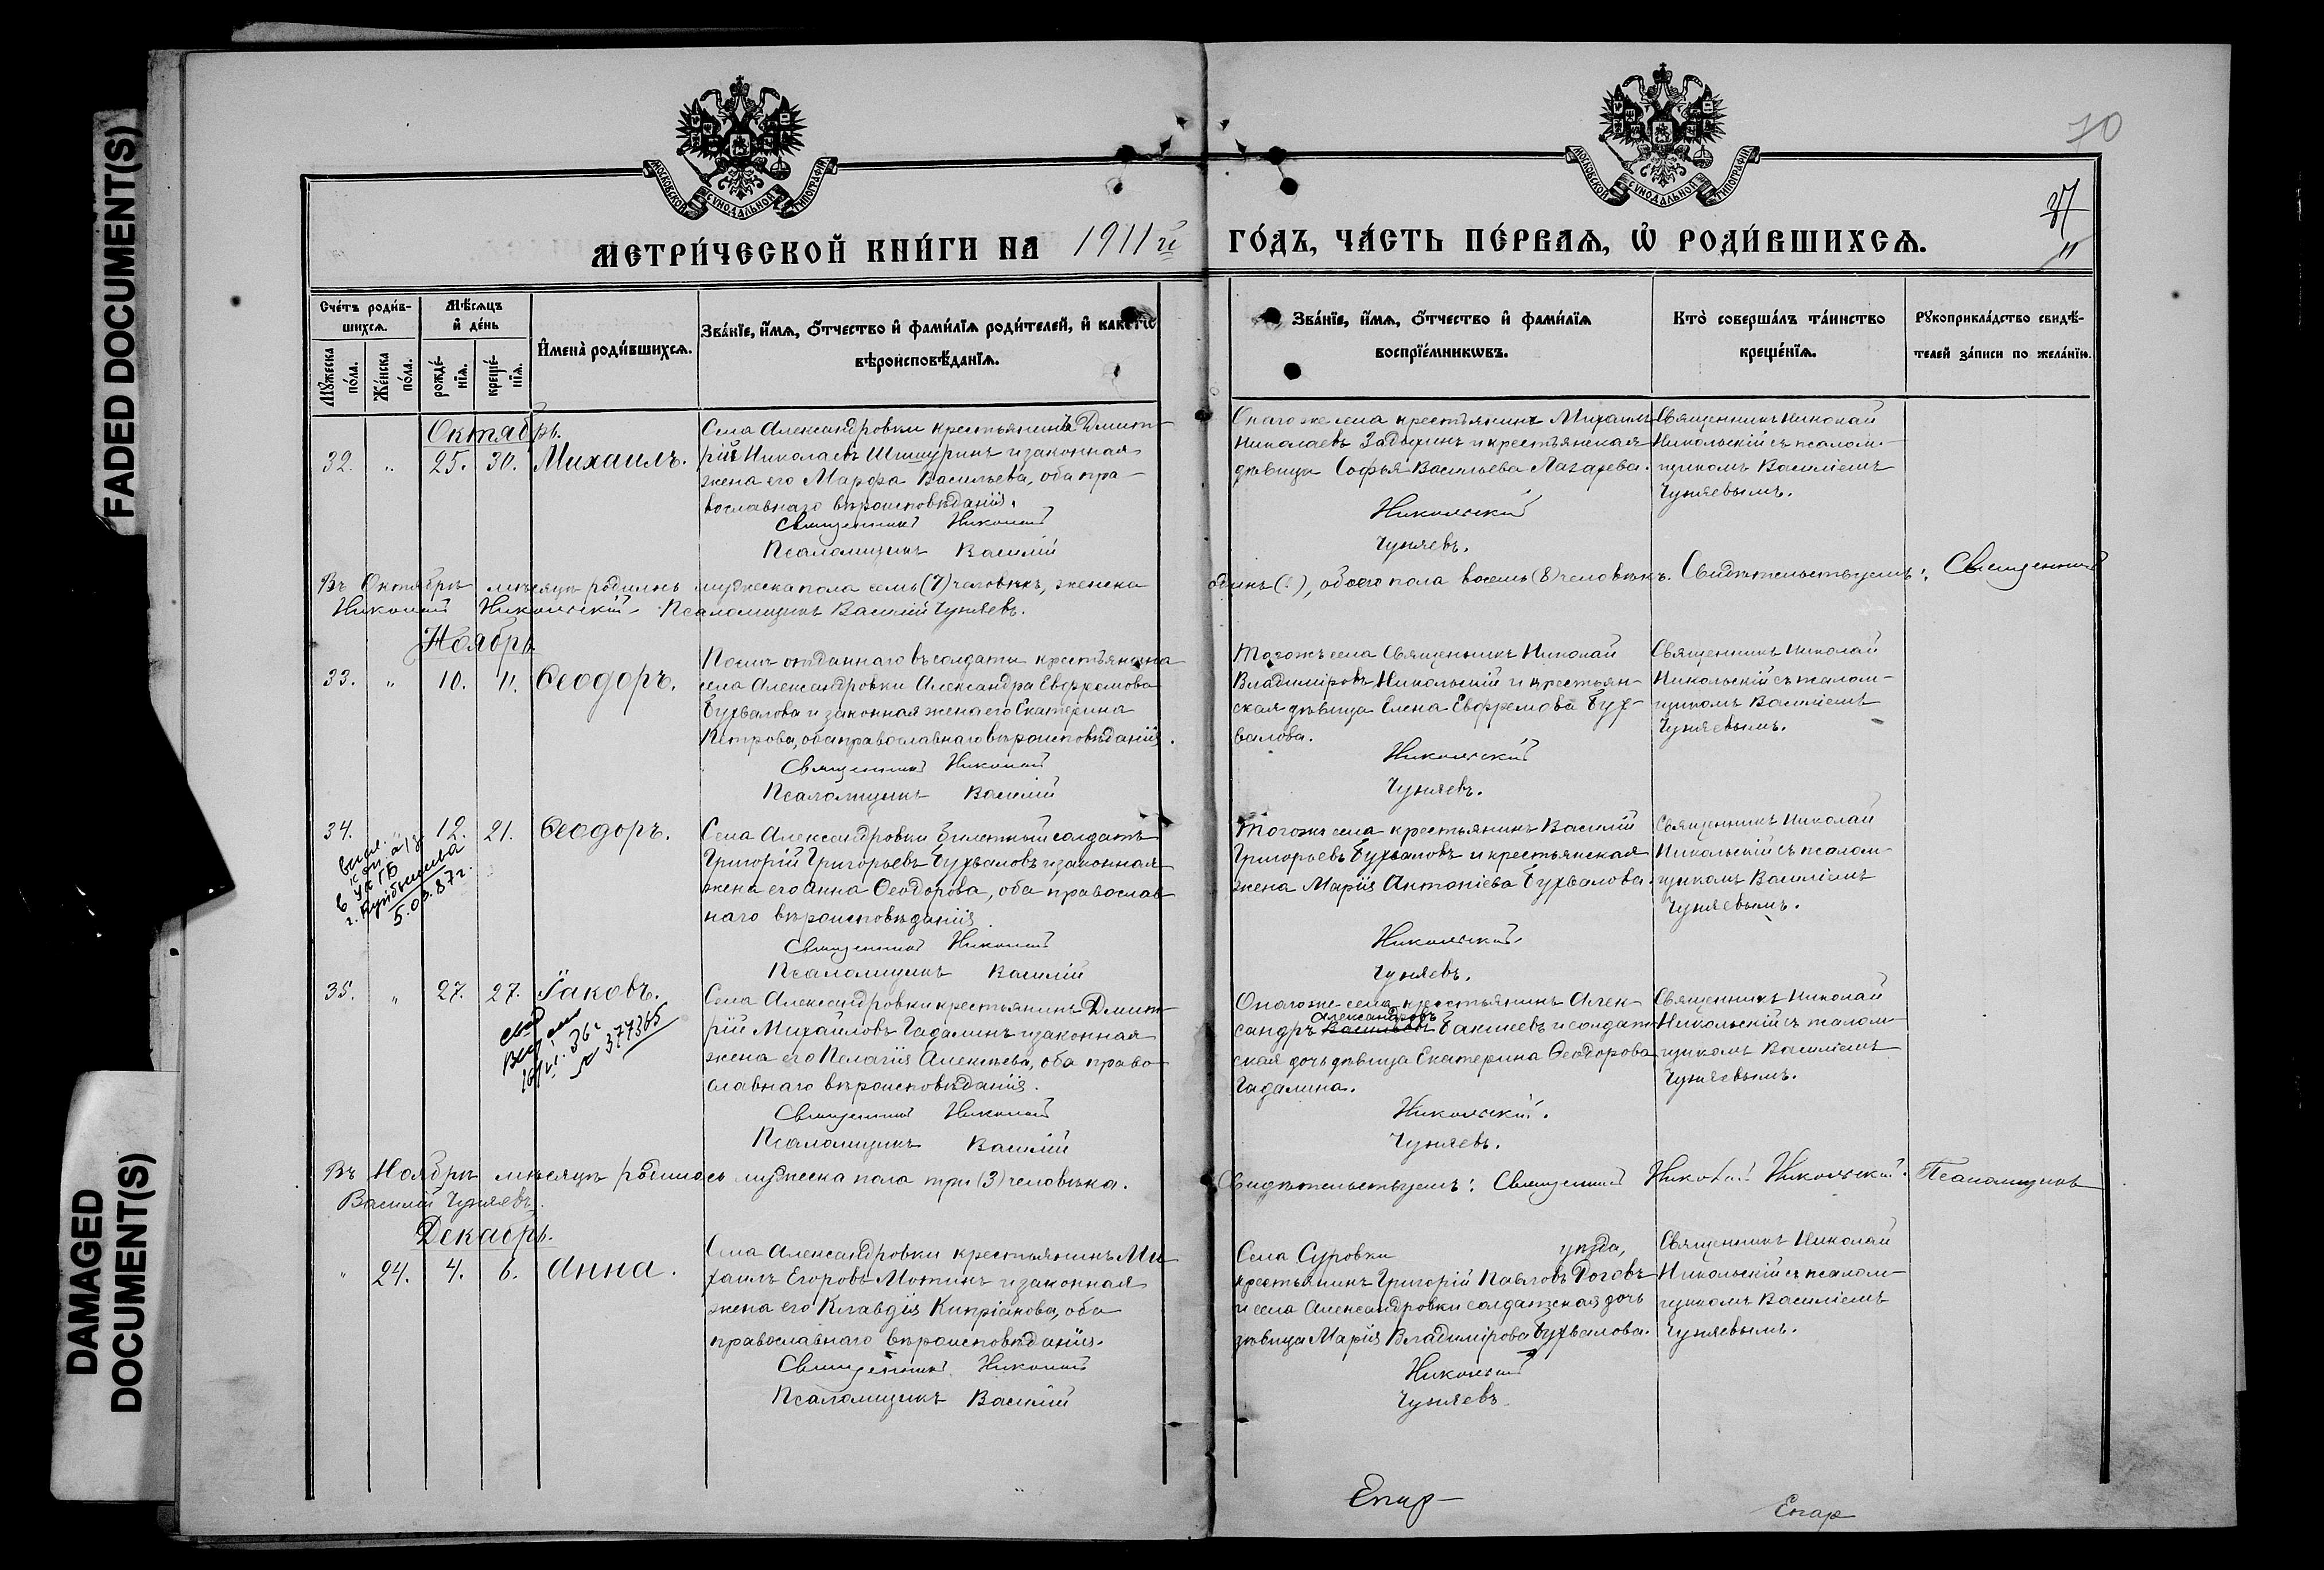 FADED DOCUMENT(S)
DAMAGED
DOCUMENT(S)
МОСКОВСКОЙ СѴНОДАЛЬНОЙ ТИПОГРАФІИ
МОСКОВСКОЙ СѴНОДАЛЬНОЙ ТИПОГРАФІИ
70
МЕТРИ́ЧЕСКОЙ КНИ́ГИ НА 1911 й ГО́ДЪ, ЧА́СТЬ ПЕ́РВАѦ, Ѡ҆ РОДИ́ВШИХСѦ.
11
Сче́тъ роди́в-
шихсѧ.
Мѣ́сѧцъ
и҆ де́нь
Мꙋ́жеска
по́ла.
Же́нска
по́ла.
рожде́-
нїѧ.
креще́-
нїѧ.
И҆мена̀ роди́вшихсѧ.
Зва́нїе, и҆́мѧ, ѻ҆́тчество и҆ фами́лїѧ роди́телей, и҆ како́гѡ
вѣроисповѣ́данїѧ.
Зва́нїе, и҆́мѧ, ѻ҆́тчество и҆ фами́лїѧ
воспрїе́мникѡвъ.
Кто̀ соверша́лъ та́инство
креще́нїѧ.
Рꙋкоприкла́дство свидѣ́-
телей за́писи по жела́нїю.
Октябрь.
32. „ 25. 30. Михаилъ.
Села Александровки крестьянинъ Дмит-
рій Николаевъ Шишуринъ и законная
жена его Марфа Васильева, оба пра-
вославнаго вѣроисповѣданія.
Священникъ Николай
Псаломщикъ Василій
Онаго же села крестьянинъ Михаилъ
Николаевъ Задыхинъ и крестьянская
дѣвица Софья Васильева Лазарева.
Никольскій
Чуняевъ.
Священникъ Николай
Никольскій съ псалом-
щикомъ Василіемъ
Чуняевымъ.
Въ Октябрѣ мѣсяцѣ родилось мужеска пола семь (7) человѣкъ, женска
одинъ (1), обоего пола восемь (8) человѣкъ. Свидѣтельствуемъ: Священникъ
Николай Никольскій. Псаломщикъ Василій Чуняевъ.
Ноябрь
33. „ 10. 11. Ѳеодоръ.
Послѣ отданнаго въ солдаты крестьянина
села Александровки Александра Евфремова
Бухвалова и законная жена его Екатерина
Петрова, оба православнаго вѣроисповѣданія.
Священникъ Николай
Псаломщикъ Василій
Тогожъ села Священникъ Николай
Владиміровъ Никольскій и крестьян-
ская дѣвица Елена Евфремова Бух-
валова.
Никольскій
Чуняевъ.
Священникъ Николай
Никольскій съ псалом-
щикомъ Василіемъ
Чуняевымъ.
34. 12. 21. Ѳеодоръ.
в
г. Куйбышева
5.03.87г.
Села Александровки билетный солдатъ
Григорій Григорьевъ Бухваловъ и законная
жена его Анна Ѳеодорова, оба православ
наго вѣроисповѣданія.
Священникъ Николай
Псаломщикъ Василій
Тогожъ села крестьянинъ Василій
Григорьевъ Бухваловъ и крестьянская
жена Марія Антоніева Бухвалова.
Никольскій.
Чуняевъ.
Священникъ Николай
Никольскій съ псалом-
щикомъ Василіемъ
Чуняевымъ.
35. „ 27. 27. Іаковъ.
36г
№ 377365
Села Александровки крестьянинъ Дмит-
рій Михайловъ Гадалинъ и законная
жена его Пелагія Алексѣева, оба право-
славнаго вѣроисповѣданія.
Священникъ Николай
Псаломщикъ Василій
Онаго же села крестьянинъ Алек-
Александровъ
сандръ Васильевъ Бакшеевъ и солдат-
ская дочь дѣвица Екатерина Ѳеодорова
Гадалина.
Никольскій.
Чуняевъ.
Священникъ Николай
Никольскій съ псалом-
щикомъ Василіемъ
Чуняевымъ.
Въ Ноябрѣ мѣсяцѣ родилось мужеска пола три (3) человѣка. Свидѣтельствуемъ: Священникъ Николай Никольскій. Псаломщикъ
Василій Чуняевъ.
Декабрь.
„ 24. 4. 6. Анна.
Села Александровки крестьянинъ Ми-
хаилъ Егоровъ Мотинъ и законная
жена его Клавдія Кипріанова, оба
православнаго вѣроисповѣданія.
Священникъ Николай
Псаломщикъ Василій
Села Суровки уѣзда,
крестьянинъ Григорій Павловъ Роговъ
и села Александровки солдатская дочь
дѣвица Марія Владимірова Бухвалова.
Никольскій
Чуняевъ
Священникъ Николай
Никольскій съ псалом-
щикомъ Василіемъ
Чуняевымъ.
Епар-
Епар